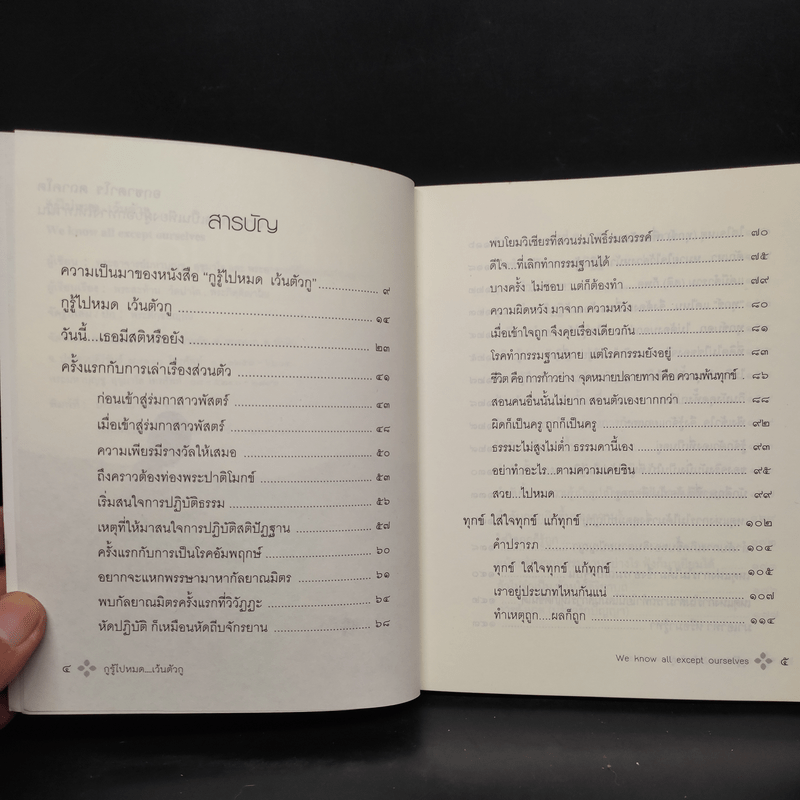 สารบัญ
ความเป็นมาของหนังสือ "กูรู้ไปหมด เว้นตัวกู" ................ ๙
กูรู้ไปหมด เว้นตัวกู ................ ๑๔
วันนี้...เธอมีสติหรือยัง ................ ๒๓
ครั้งแรกกับการเล่าเรื่องส่วนตัว ................ ๔๑
ก่อนเข้าสู่ร่มกาสาวพัสตร์ ................ ๔๓
เมื่อเข้าสู่ร่มกาสาวพัสตร์ ................ ๔๘
ความเพียรมีรางวัลให้เสมอ ................ ๕๐
ถึงคราวต้องท่องพระปาติโมกข์ ................ ๕๓
เริ่มสนใจการปฏิบัติธรรม ................ ๕๖
เหตุที่ให้มาสนใจการปฏิบัติสติปัฏฐาน ................ ๕๗
ครั้งแรกกับการเป็นโรคอัมพฤกษ์ ................ ๖๐
อยากจะแหกพรรษามาหากัลยาณมิตร ................ ๖๑
พบกัลยาณมิตรครั้งแรกที่วิวัฏฏะ ................ ๖๔
หัดปฏิบัติ ก็เหมือนหัดถีบจักรยาน ................ ๖๘
๔ กูรู้ไปหมด...เว้นตัวกู
พบโยมวิเชียรที่สวนร่มโพธิ์ร่มสวรรค์ ................ ๗๐
ดีใจ...ที่เลิกทำกรรมฐานได้ ................ ๗๕
บางครั้ง ไม่ชอบ แต่ก็ต้องทำ ................ ๗๙
ความผิดหวัง มาจาก ความหวัง ................ ๘๐
เมื่อเข้าใจถูก จึงคุยเรื่องเดียวกัน ................ ๘๑
โรคทำกรรมฐานหาย แต่โรคกรรมยังอยู่ ................ ๘๓
ชีวิต คือ การก้าวย่าง จุดหมายปลายทาง คือ ความพ้นทุกข์ ....... ๘๖
สอนคนอื่นนั้นไม่ยาก สอนตัวเองยากกว่า ................ ๘๘
ผิดก็เป็นครู ถูกก็เป็นครู ................ ๙๒
ธรรมะไม่สูงไม่ต่ำ ธรรมดานี้เอง ................ ๙๓
อย่าทำอะไร...ตามความเคยชิน ................ ๙๕
สวย...ไปหมด ................ ๙๙
ทุกข์ ใส่ใจทุกข์ แก้ทุกข์ ................ ๑๐๒
คำปรารภ ................ ๑๐๔
ทุกข์ ใส่ใจทุกข์ แก้ทุกข์ ................ ๑๐๕
เราอยู่ประเภทไหนกันแน่ ................ ๑๐๗
ทำเหตุถูก....ผลก็ถูก ................ ๑๑๔
We know all except ourselves ๕